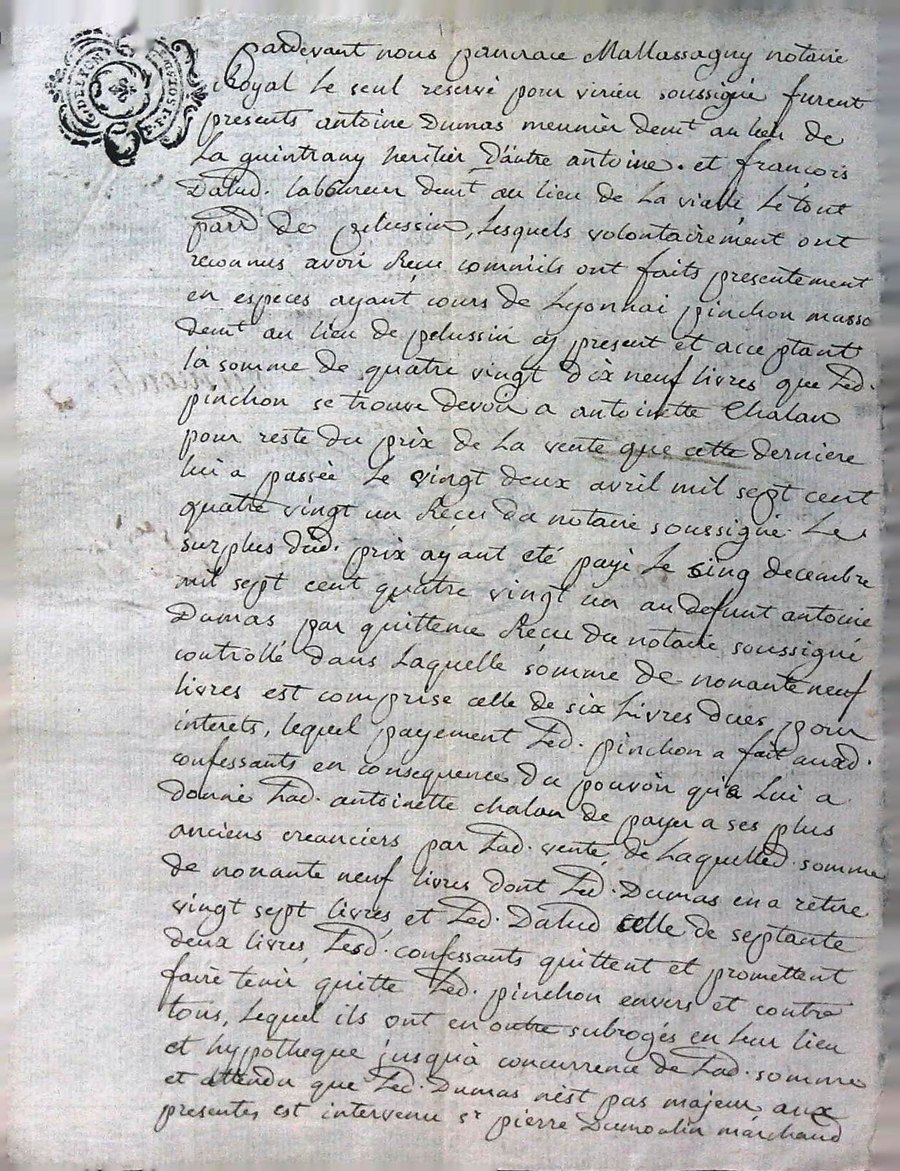 G. DE LYON
pardevant nous pancrace Mallassagny notaire
Royal Le seul reservé pour virieu soussigné furent
presents antoine Dumas meunier demt au lieu de
La guintrany heritier D'autre antoine. et françois
Dalud. laboureur demt au lieu de La vialle Le tout
parr de pelussin, Lesquels volontairement ont
reconnus avoir Reçu comm'ils ont faits presentement
en especes ayant cours de Lyonnai pinchon masso
demt au lieu de pelussin cy present et acceptant
la somme de quatre vingt dix neuf livres que Led.
pinchon se trouve devoir a antoinette Chalan
pour reste du prix de La vente que cette derniere
lui a passée Le vingt deux avril mil sept cent
quatre vingt un Reçu du notaire soussigné. Le
surplus dud. prix ayant eté payé Le cinq decembre
mil sept cent quatre vingt un au defunt antoine
Dumas par quittence Reçu du notaire soussigné
controllé dans Laquelle somme de nonante neuf
livres est comprise celle de six Livres dues pour
interets, lequel payement Led. pinchon a fait auxd.
confessants en consequence du pouvoir qu'a Lui a
donné Lad. antoinette chalan de payer a ses plus
anciens creanciers par Lad. vente, de Laquelled. somme
de nonante neuf livres dont Led. Dumas en a retiré
vingt sept livres, et Led. Dalud celle de septante
deux livres, Lesd. confessants quittent et promettent
faire tenir quitte Led. pinchon envers et contre
tous, Lequel ils ont en outre subrogés en leur lieu
et hypotheque jusqu'a concurrence de Lad. somme
et attendu que Led. Dumas n'est pas majeur aux
presentes est intervenu sr pierre Dumoulin marchand